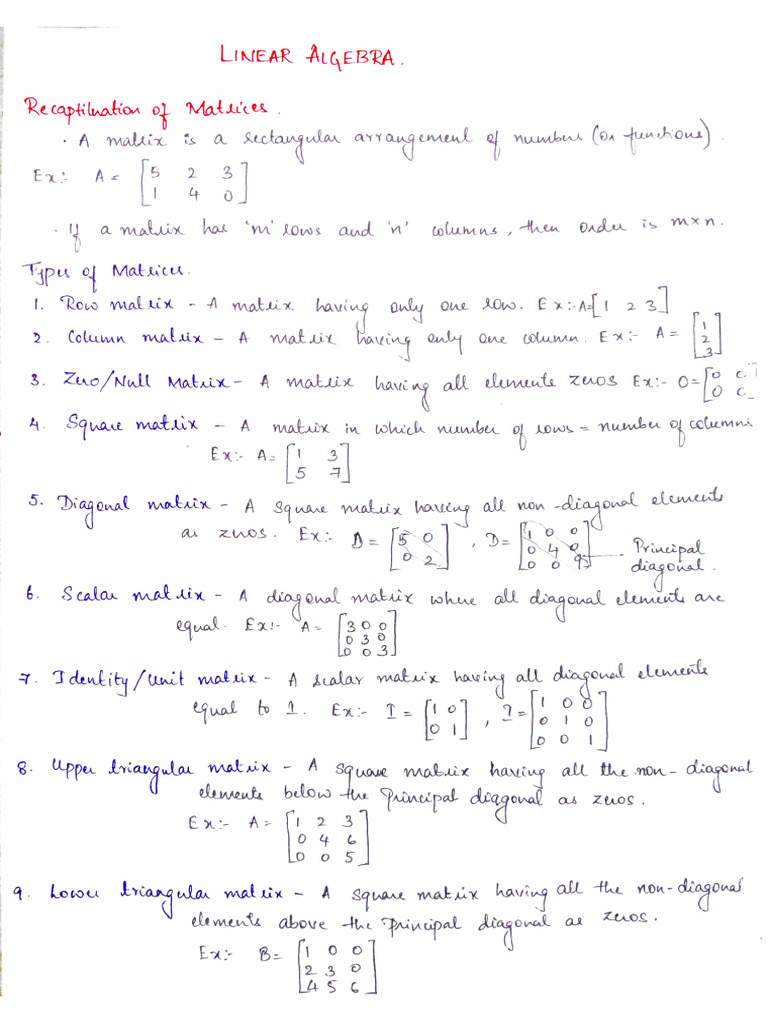 LINEAR ALGEBRA.
Recaptilnation of Matrices.
· A matrix is a rectangular arrangement of numbers (or functions).
Ex:- A = [5 2 3
1 4 0]
· If a matrix has 'm' rows and 'n' columns, then order is m×n.
Types of Matrices.
1. Row matrix - A matrix having only one row. Ex:- A=[1 2 3]
2. Column matrix - A matrix having only one column. Ex:- A = [1
2
3]
3. Zero/Null Matrix - A matrix having all elements zeros Ex:- O=[0
0
4. Square matrix - A matrix in which number of rows = number of columns
Ex:- A= [1 3
5 7]
5. Diagonal matrix - A square matrix having all non-diagonal elements
as zeros. Ex:- D = [5 0
0 2] , D= [1 0 0
0 4 0
0 0 9] Principal
diagonal.
6. Scalar matrix - A diagonal matrix where all diagonal elements are
equal. Ex:- A = [3 0 0
0 3 0
0 0 3]
7. Identity/Unit matrix - A scalar matrix having all diagonal elements
equal to 1. Ex:- I = [1 0
0 1] , I = [1 0 0
0 1 0
0 0 1]
8. Upper triangular matrix - A square matrix having all the non-diagonal
elements below the Principal diagonal as zeros.
Ex:- A = [1 2 3
0 4 6
0 0 5]
9. Lower triangular matrix - A square matrix having all the non-diagonal
elements above the Principal diagonal as zeros.
Ex:- B= [1 0 0
2 3 0
4 5 6]